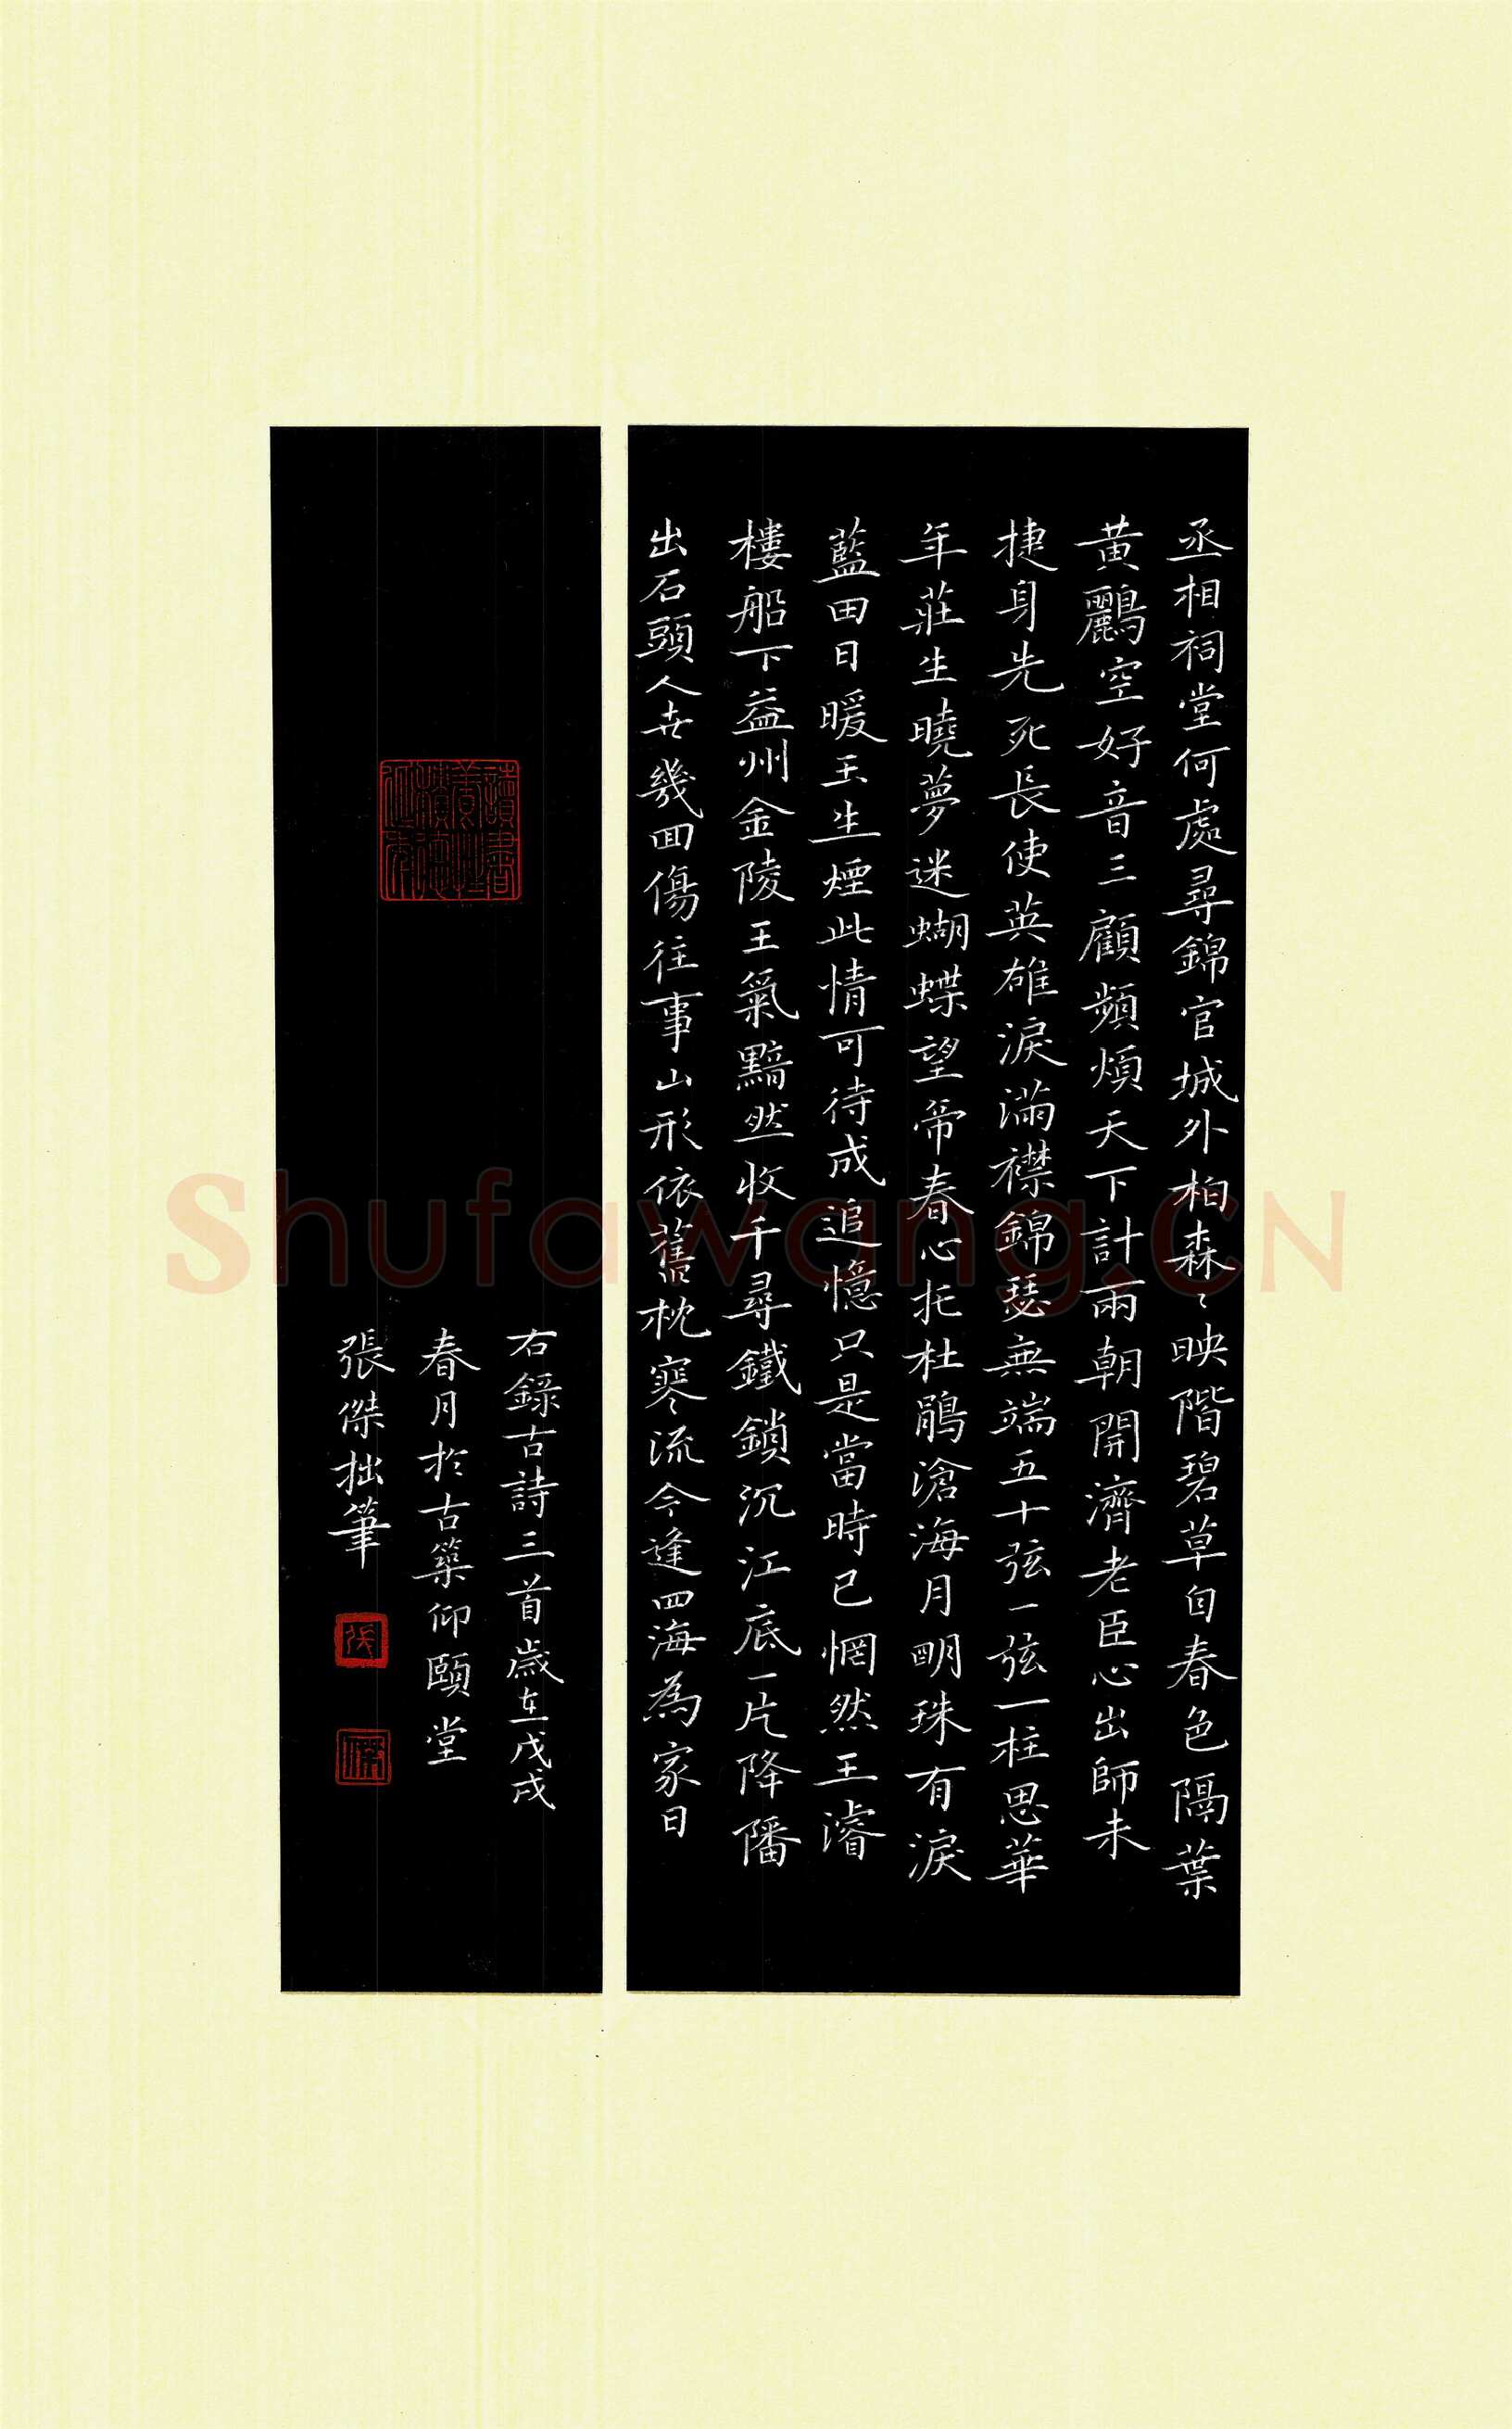 丞相祠堂何處尋錦官城外柏森〻映階碧草自春色隔葉
黃鸝空好音三顧頻煩天下計兩朝開濟老臣心出師未
捷身先死長使英雄淚滿襟錦瑟無端五十弦一弦一柱思華
年莊生曉夢迷蝴蝶望帝春心托杜鵑滄海月明珠有淚
藍田日暖玉生煙此情可待成追憶只是當時已惘然王濬
樓船下益州金陵王氣黯然收千尋鐵鎖沉江底一片降旛
出石頭人世幾回傷往事山形依舊枕寒流今逢四海為家日
右錄古詩三首歲在戊戌
春月於古築仰頤堂
張傑拙筆
張
傑
Shufawang.CN